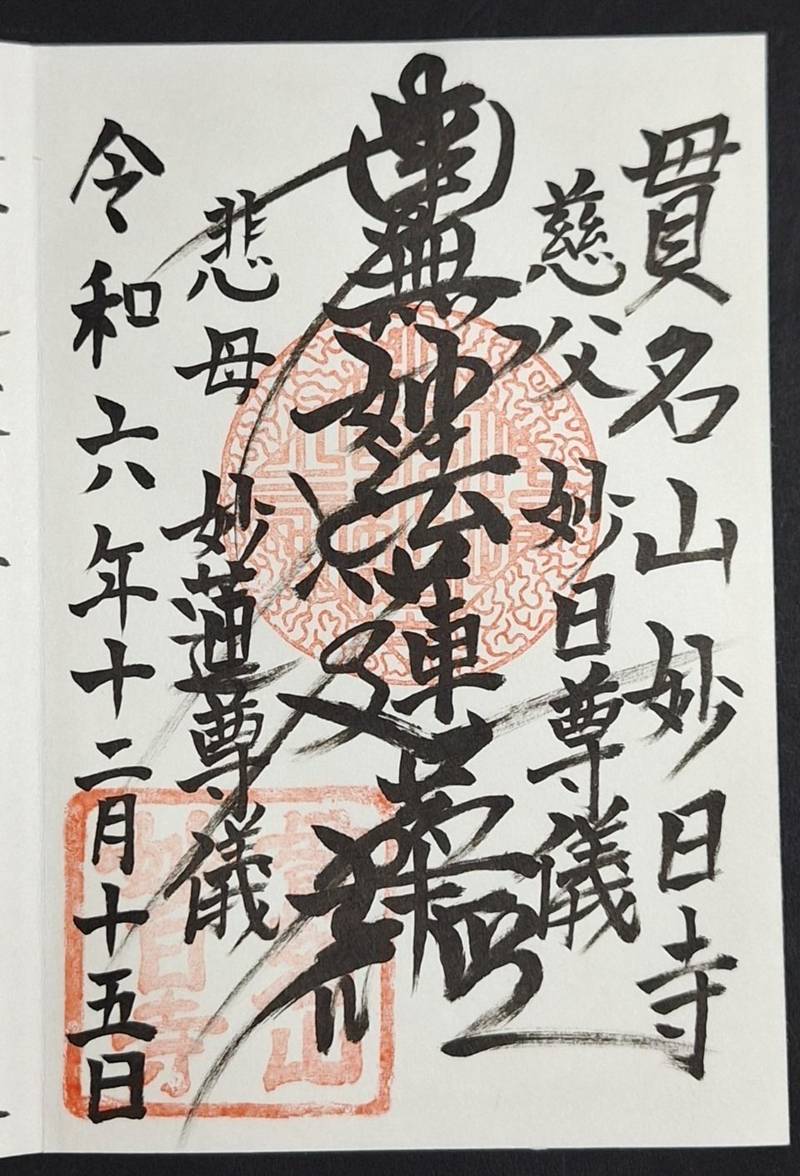 貫名山妙日寺
慈父 妙日尊儀
南無妙法蓮華経
悲母 妙蓮尊儀
令和六年十二月十五日
妙日寺